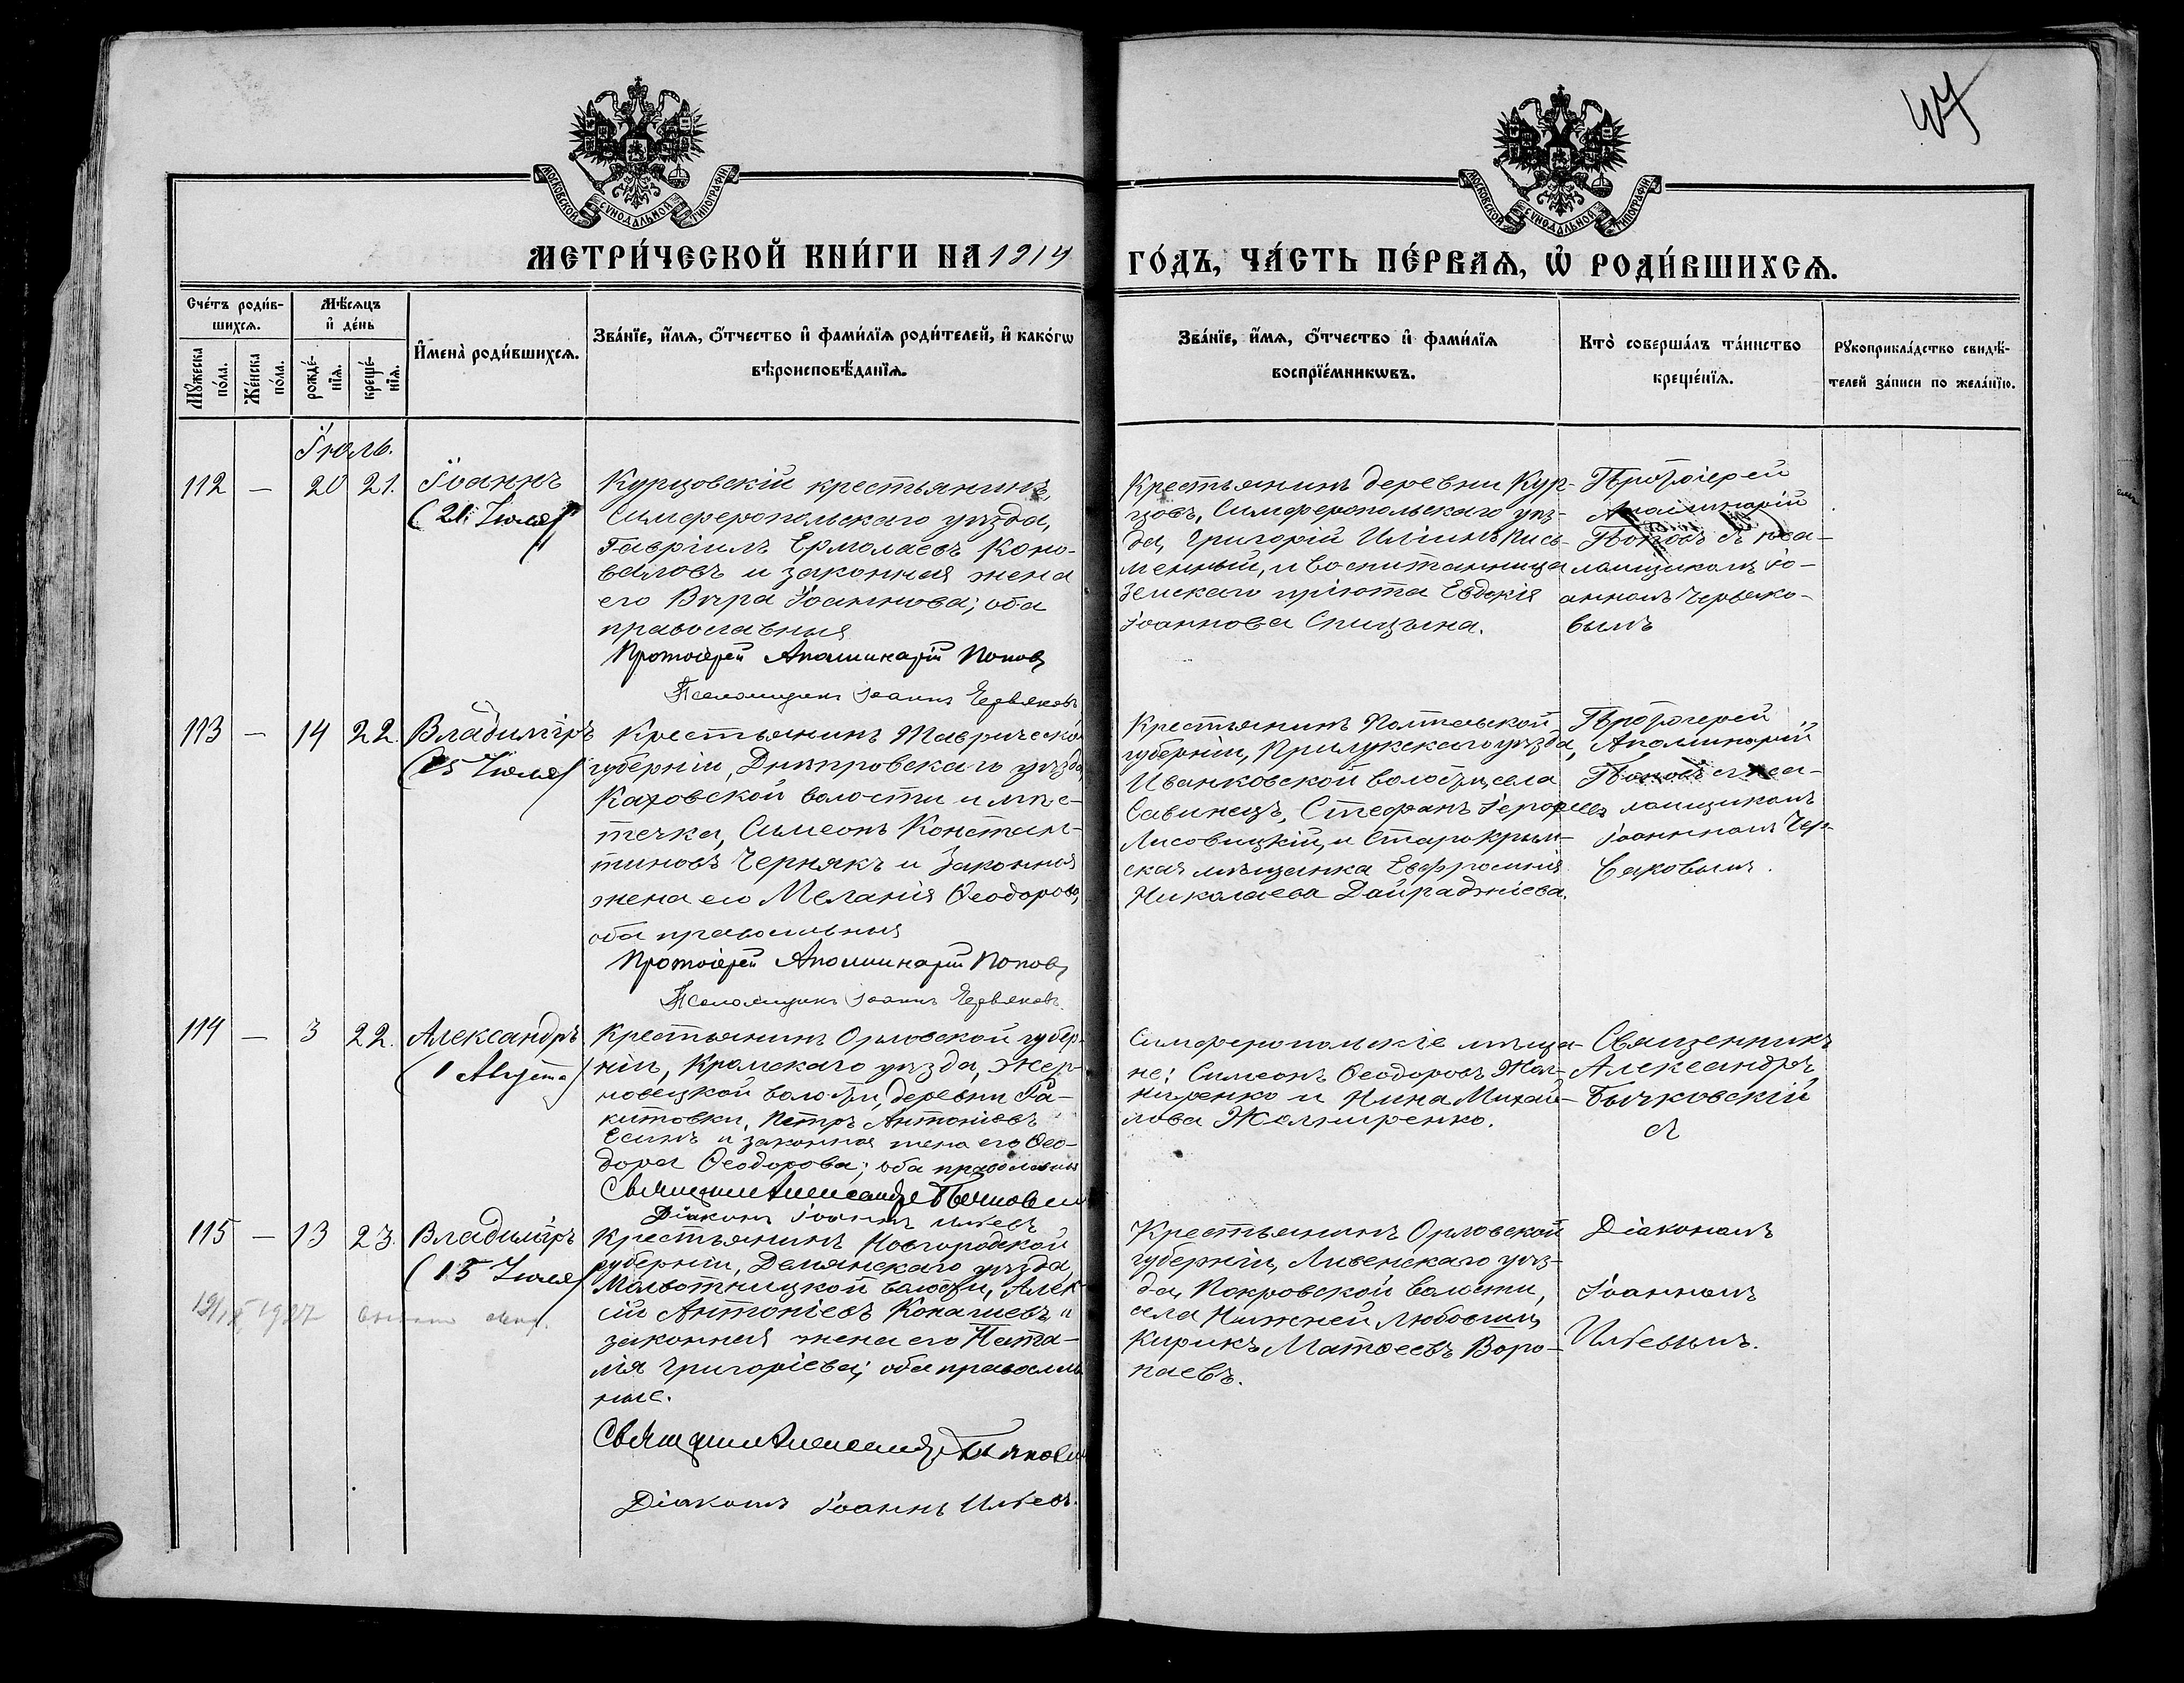 47
МОСКОВСКОЙ СУНОДАЛЬНОЙ ТИПОГРАФІИ
МОСКОВСКОЙ СУНОДАЛЬНОЙ ТИПОГРАФІИ
МЕТРИ́ЧЕСКОЙ КНИ́ГИ НА 1914
ГО́ДЪ, ЧА́СТЬ ПЕ́РВАѦ, Ѡ҆ РОДИ́ВШИХСѦ.
Сче́тъ роди́в-
шихсѧ.
Мꙋ́жеска по́ла.
Же́нска по́ла.
Мѣ́сяцъ
и҆ де́нь
рожде́-
нїѧ.
креще́-
нїѧ.
И҆мена̀ роди́вшихсѧ.
Зва́нїе, и҆́мѧ, ѻ҆́тчество и҆ фами́лїѧ роди́телей, и҆ како́гѡ
вѣроисповѣ́данїѧ.
Зва́нїе, и҆́мѧ, ѻ҆́тчество и҆ фами́лїѧ
воспрїе́мникѡвъ.
Кто̀ соверша́лъ та́инство
креще́нїѧ.
Рꙋкоприкла́дство свидѣ́-
телей за́писи по жела́нїю.
Іюль.
112 — 20 21. Іоаннъ
(21 Іюля)
Курцовскій крестьянинъ,
Симферопольскаго уѣзда,
Гавріилъ Ермолаевъ Коно-
валовъ и законная жена
его Вѣра Іоаннова; оба
православныя
Протоіерей Аполлинарій Попов
Псаломщикъ Іоаннъ Червяковъ
Крестьянинъ деревни Кур-
цовъ, Симферопольскаго уѣз-
да, Григорій Иліинъ Пись-
менный, и воспитанница
Земскаго пріюта Евдокія
Іоаннова Спицына.
Протоіерей
Аполлинарій
Поповъ съ пса-
ломщикомъ Іо-
анномъ Червяко-
вымъ
113 — 14 22. Владиміръ
(15 Іюля)
Крестьянинъ Таврической
губерніи, Днѣпровскаго уѣзда,
Каховской волости и мѣс-
течка, Симеонъ Констан-
тиновъ Чернякъ и законная
жена его Меланія Ѳеодорова,
оба православныя
Протоіерей Аполлинарій Попов
Псаломщикъ Іоаннъ Червяковъ
Крестьянинъ Полтавской
губерніи, Прилукскаго уѣзда,
Иванковской волости, села
Савинецъ, Стефанъ Іерофеевъ
Лисовицкій, и Старокрым-
ская мѣщанка Евфросинія
Николаева Дайраджіева.
Протоіерей
Аполлинарій
Поповъ съ пса-
ломщикомъ
Іоанномъ Чер-
вяковымъ.
114 — 3 22. Александръ
(1 Августа)
Крестьянинъ Орловской губер-
ніи, Кромскаго уѣзда, Жер-
новецкой волости, деревни Ра-
китовки, Петръ Антоніевъ
Есинъ и законная жена его Ѳео-
дора Ѳеодорова; оба православныя
Священникъ Александръ Бычковскій
Діаконъ Іоаннъ Ильевъ
Симферопольскіе мѣща-
не: Симеонъ Ѳеодоровъ Жол-
ниренко и Нина Михай-
лова Жолниренко.
Священникъ
Александръ
Бычковскій
115 — 13 23. Владиміръ
(15 Іюля)
Крестьянинъ Новгородской
губерніи, Демянскаго уѣзда,
Молвотицкой волости, Алек-
сій Антоніевъ Копачевъ и
законная жена его Ната-
лія Григоріева; оба православ
ные.
Священникъ Александръ Бычковскій
Діаконъ Іоаннъ Ильевъ.
Крестьянинъ Орловской
губерніи, Ливенскаго уѣз-
да, Покровской волости,
села Нижней Любовши,
Кирикъ Матѳеевъ Воро-
паевъ.
Діакономъ
Іоанномъ
Ильевымъ.
1927